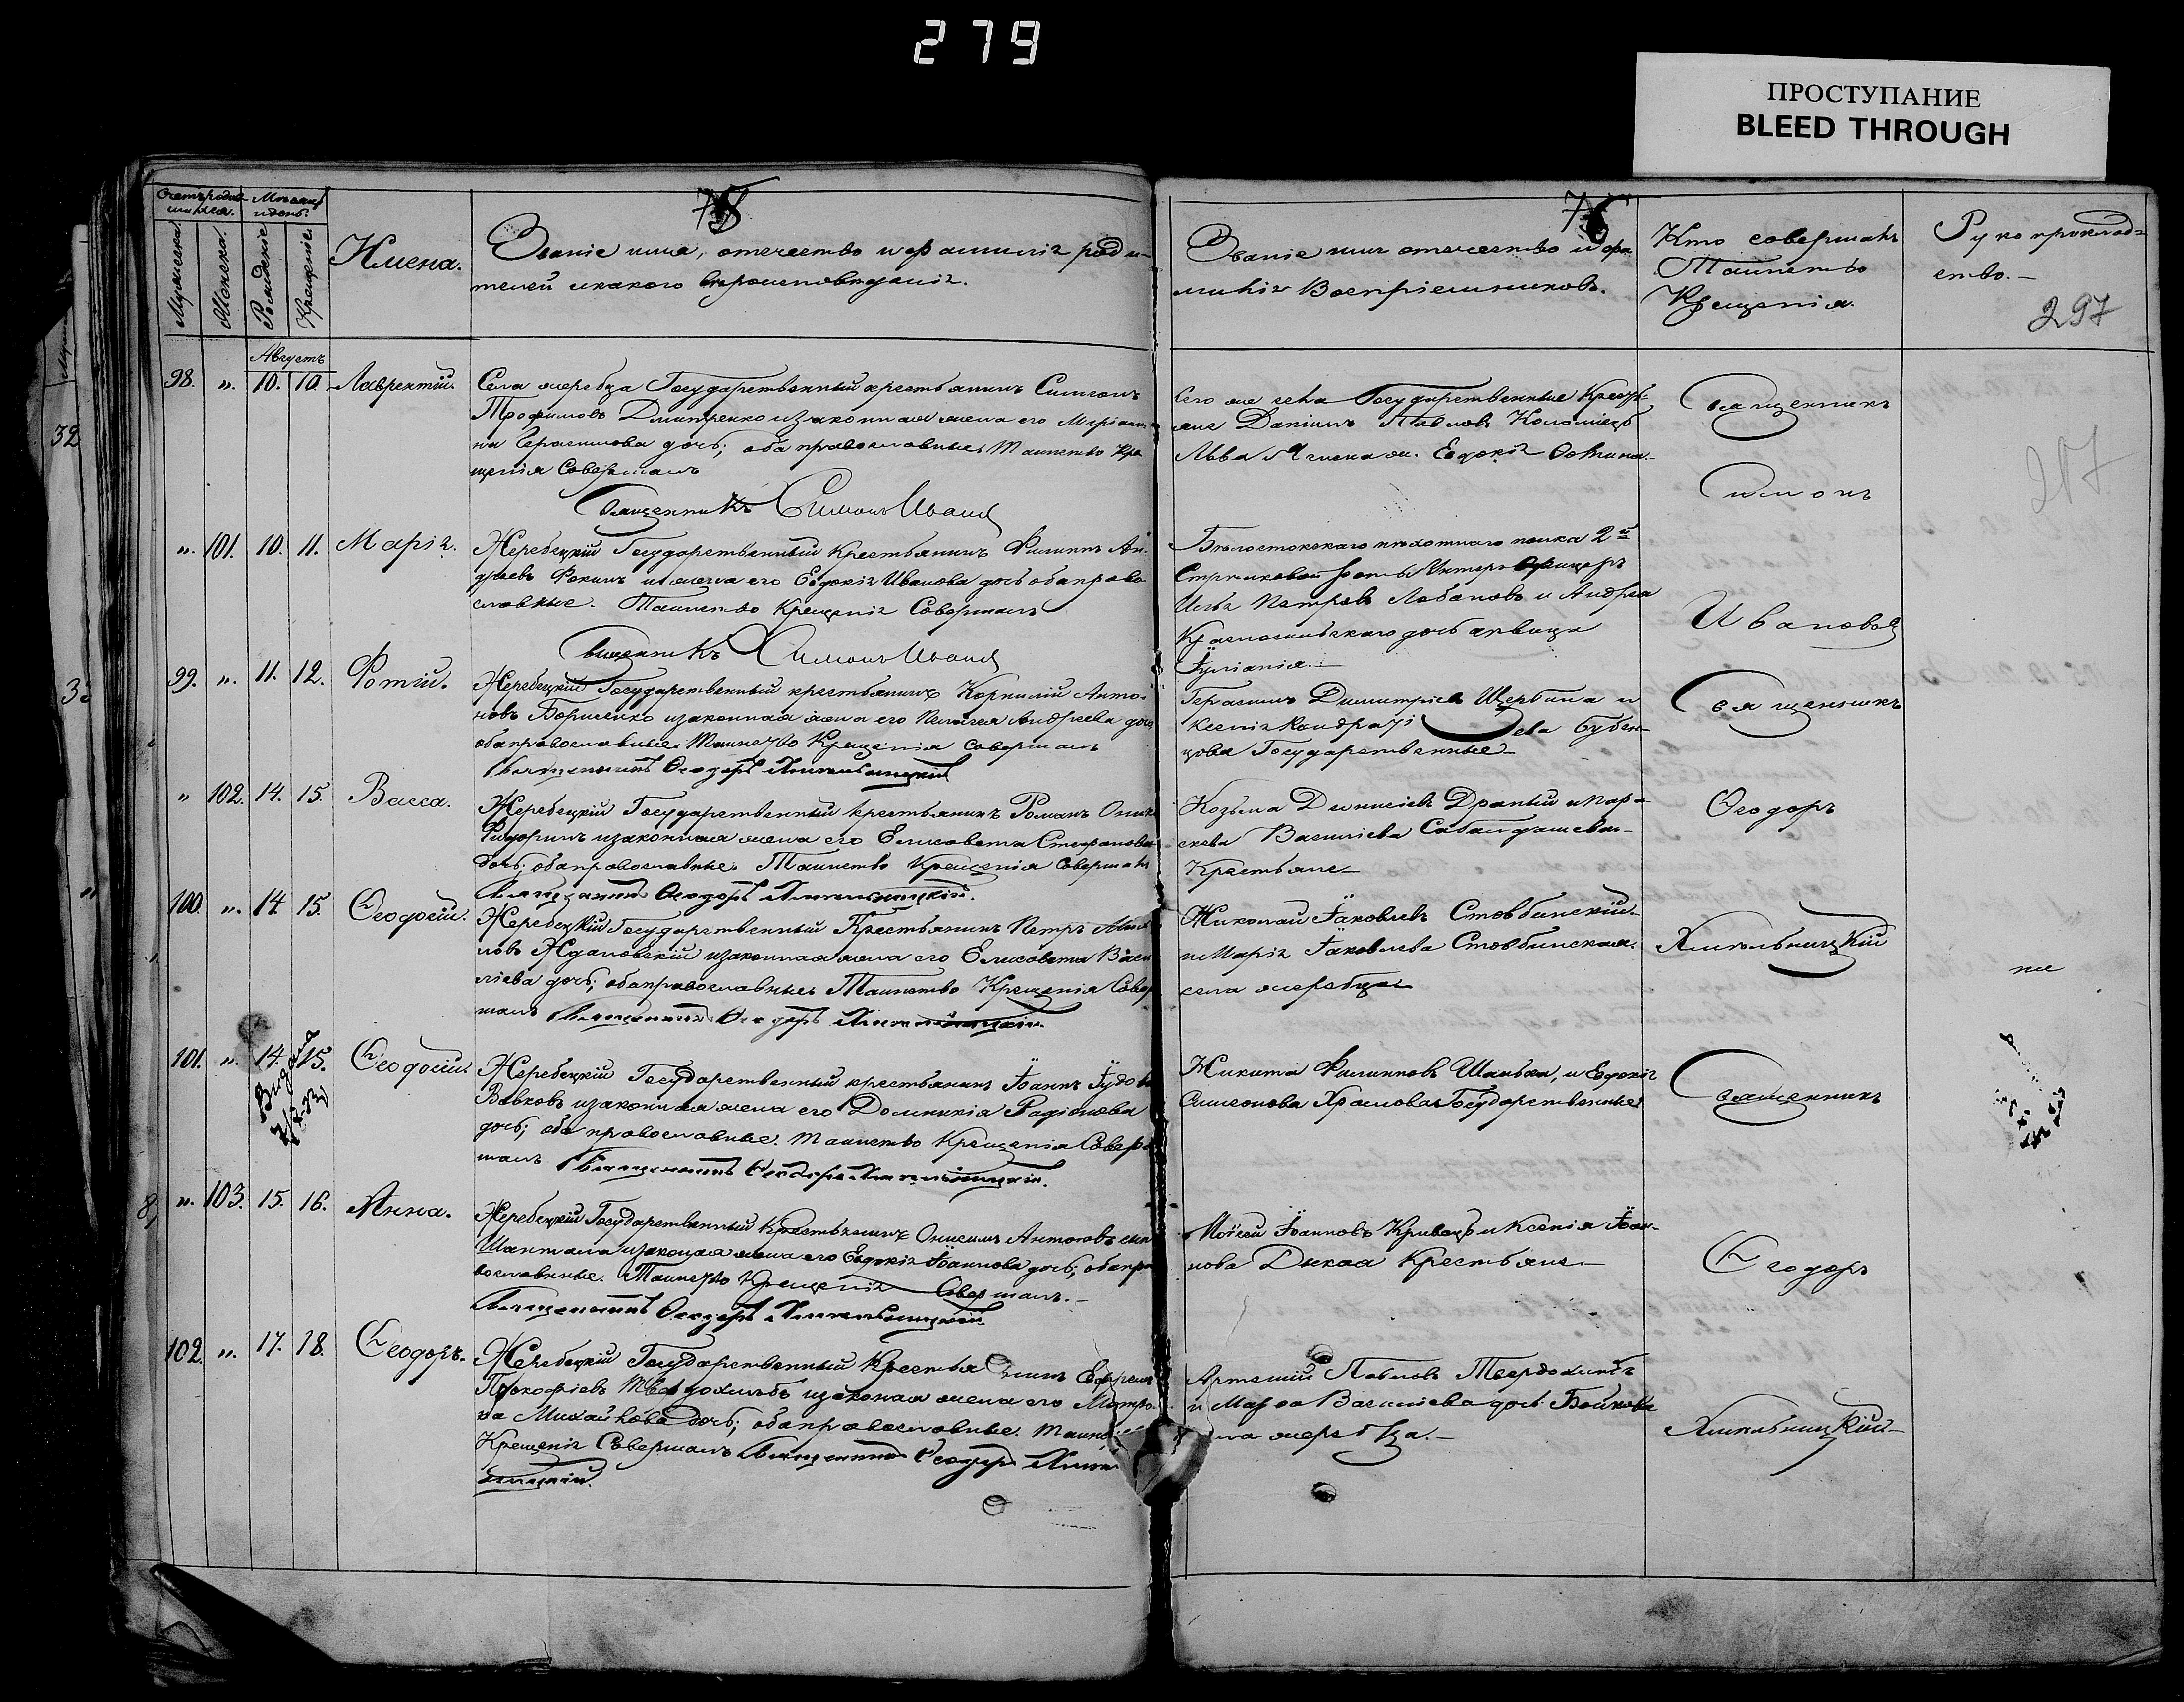 279
ПРОСТУПАНИЕ
BLEED THROUGH
Счетъ родив-
шихся.
Мѣсяцъ
и день.
Мужеска.
Женска.
Рожденіе
Крещеніе.
Имена.
Званіе имя, отчество и фамилія роди-
телей и какого вѣроисповѣданія.
Званіе имя отчество и фа-
милія Воспріемниковъ.
Кто совершалъ
Таинство
Крещенія.
Рукоприклад-
ство.
297
Августъ
98. „ 10. 10. Лаврентій.
Села жеребца Государственный крестьянинъ Симеонъ
Трофимовъ Дмитренко и законная жена его Маріан-
на Герасимова дочь; оба православные, Таинство Кре
щенія Совершалъ
Священникъ Симонъ Иванов
Сего же села Государственные Кресть-
яне Даніилъ Павловъ Коломіецъ
Льва Ячника ж. Евдокія
Священникъ
Симонъ
Ивановъ
217
„ 101. 10. 11. Марія.
Жеребецкій Государственный Крестьянинъ Филиппъ Ан-
дреевъ Фокинъ и жена его Евдокія Иванова дочь оба право
славные. Таинство Крещенія Совершалъ
Священникъ Симонъ Иванов
Бѣлостокскаго пѣхотнаго полка 2й
Стрѣлковой роты Унтеръ Офицеръ
Илья Петровъ Лобановъ и Андрея
Красносельскаго дочь дѣвица
Іуліанія.
99. „ 11. 12. Фотій.
Жеребецкій Государственный крестьянинъ Корнилій Анто-
новъ Борисенко и законная жена его Пелагея Андреева дочь
оба православные. Таинство Крещенія совершалъ
Священникъ Ѳеодоръ Хмельницкій
Герасимъ Димитріевъ Щербина и
Ксенія Кондратіева Бубен-
цова Государственные
Священникъ
Ѳеодоръ
Хмельницкій
„ 102. 14. 15. Васса.
Жеребецкій Государственный крестьянинъ Романъ
и законная жена его Елисавета Стефанова
дочь; оба православные. Таинство Крещенія Совершалъ
Священникъ Ѳеодоръ Хмельницкій.
Козьма Діонисіевъ Драный и Пар-
скева Василіева
Крестьяне
100. „ 14. 15. Ѳеодосій.
Жеребецкій Государственный Крестьянинъ Петръ
Ждановскій и законная жена его Елисавета Васи
ліева дочь; оба православные Таинство Крещенія Совер
шалъ Священникъ Ѳеодоръ Хмельницкій.
Николай Іаковлевъ Стовбинскій
и Марія Іаковлева Стовбинская
села жеребца
101. „ 14. 15. Ѳеодосій
Выдана
Жеребецкій Государственный крестьянинъ Іоаннъ
Вовковъ и законная жена его Домникія Радіонова
дочь; оба православные. Таинство Крещенія Совер
шалъ Священникъ Ѳеодоръ Хмельницкій.
Никита Филипповъ Шанька, и Евдокія
Симеонова Храмова Государственные
Священникъ
Ѳеодоръ
Хмельницкій
„ 103. 15. 16. Анна.
Жеребецкій Государственный Крестьянинъ Онисимъ Антоновъ сынъ
Шаптала и законная жена его Евдокія Іоаннова дочь; оба пра
вославные. Таинство Крещенія Совершалъ.
Священникъ Ѳеодоръ Хмельницкій
Моисей Іоанновъ Кривецъ и Ксенія Іоан-
нова Дикая Крестьяне
102. „ 17. 18. Ѳеодоръ.
Жеребецкій Государственный Крестьянинъ Ефремъ
Прокофіевъ Твердохлѣбъ и законая жена его Матро-
на Михайлова дочь; оба православные. Таинство
Крещенія Совершалъ Священникъ Ѳеодоръ Хмель
ницкій.
Артемій Павловъ Твердохлѣбъ
и Марѳа Василіева дочь Бойкова
села жеребца.